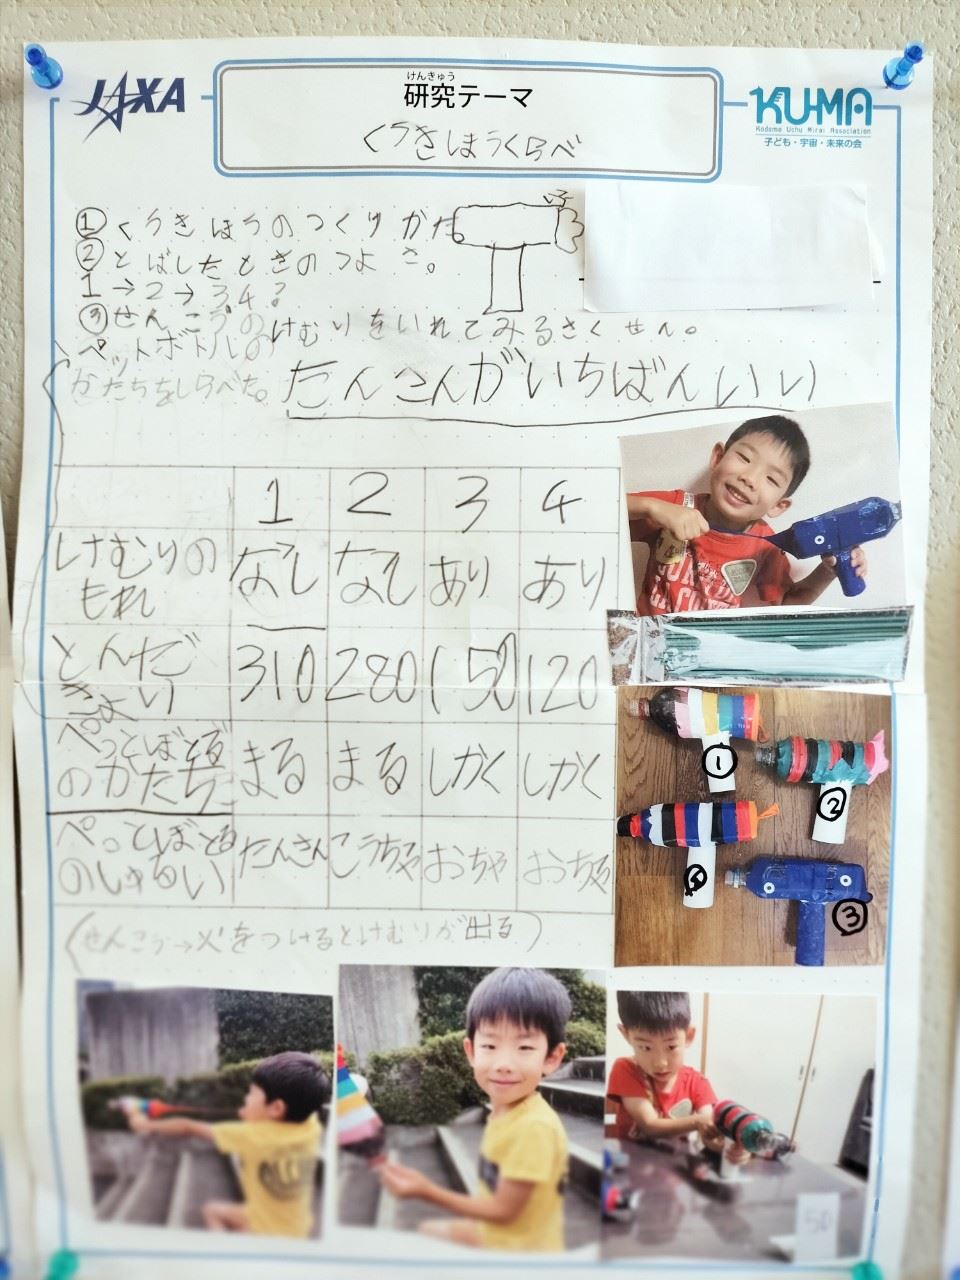 JAXA
けんきゅう
研究テーマ
くうきほうくらべ
KU-MA
Kodomo Uchu Mirai Association
子ども・宇宙・未来の会
①くうきほうのつくりかた
②とばしたときのつよさ。
1→2→3.4?
③せんこうのけむりをいれてみるさくせん。
ペットボトルの
かたちをしらべた。
たんさんがいちばんいい
1 2 3 4
けむりの
もれ
なし なし あり あり
とんだ
きょり
310 280 150 120
ぺっとぼとる
のかたち
まる まる しかく しかく
ぺっとぼとる
のしゅるい
たんさん こうちゃ おちゃ おちゃ
(せんこう→火をつけるとけむりが出る)
①
②
④
③
50